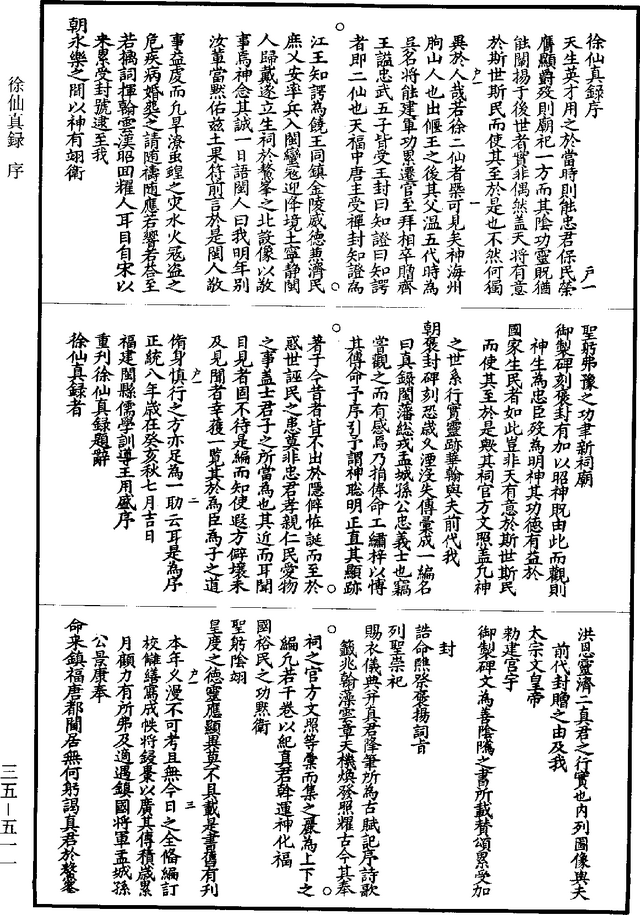 徐仙真録序
天生英才用之於當時則能忠君保民榮
膺顯爵歿則廟祀一方而其陰功靈貺猶
能闡揚于後世者實非偶然蓋天將有意
於斯世斯民而使其至於是也不然何獨
異於人哉若徐二仙者槩可見矣神海州
朐山人也出偃王之後其父溫五代時為
吳名將能建軍功累遷官至拜相卒贈齊
王謚忠武五子皆受王封曰知證曰知諤
者即二仙也天福中唐主受禪封知證為
江王知諤為饒王同鎮金陵威德兼濟民
庶乂安率兵入閩蠻寇迎降境土寧靜閩
人歸戴遂立生祠於鰲峯之北設像以敬
事焉神念其誠一日語閩人曰我明年別
汝輩當默佑茲土果符前言於是閩人敬
事益虔而凡旱潦虫蝗之灾水火寇盗之
危疾病婚愆之請随禱随應若響若荅至
若禱詞揮翰雲漢昭回耀人耳目自宋以
来累受封號逮至我
朝永樂之間以神有翊衛
聖躬弗豫之功聿新祠廟
御製碑刻褒封有加以昭神貺由此而觀則
神生為忠臣歿為明神其功德有益於
國家生民者如此豈非天有意於斯世斯民
而使其至於是歟其祠官方文照盖凡神
之世系行實靈跡華翰與夫前代我
朝褒封碑刻恐歲久湮沒失傳彙成一編名
曰真録閩藩総戎孟城孫公忠義士也竊
嘗觀之而有感焉乃捐俸命工繡梓以傳
其傳命予序引予謂神聡明正直其顯跡
著于今昔者皆不出於隱僻恠誕而至於
惑世誣民之患莫非忠君孝親仁民愛物
之事盖士君子之所當為也其近而耳聞
目見者固不待是編而知使遐方僻壤未
及見聞者幸獲一覧其於為臣為子之道
脩身慎行之方亦足為一助云耳是為序
正統八年歳在癸亥秋七月吉日
福建閩縣儒學訓導王用盛序
重刋徐仙真録題辭
徐仙真録者
洪恩靈濟二真君之行實也内列圖像與夫
前代封贈之由及我
太宗文皇帝
勑建宫宇
御製碑文為善陰隲之書所載賛頌累受加
封
誥命㷩奬褒揚詞旨
列聖崇祀
賜衣儀典并真君降筆所為古賦記序詩歌
籖兆翰藻雲章天機煥發照耀古今其奉
祠之官方文照等彙而集之嚴為上下之
編凡若干卷以紀真君斡運神化福
國裕民之功默衛
聖躬陰翊
皇度之德靈應顯異莫不具載是書舊有刋
本年乂漫不可考且無今日之全俻編訂
校讎繕寫成帙將鋟棗以廣其傳積歳累
月顧力有所弗及適遇鎮國將軍孟城孫
公景康奉
命来鎮福唐都閫居無何躬謁真君於鰲峯
徐仙真録 序
三五-五一一
户一
户一
一
户一
二
户一
三